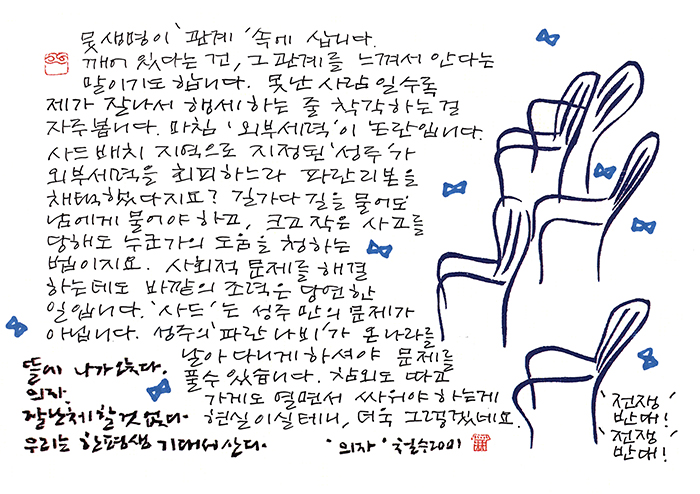 뭇 생명이 '관계' 속에 삽니다.
깨어 있다는 건, 그 관계를 느껴서 안다는
말이기도 합니다. 못난 사람일수록
제가 잘나서 행세하는 줄 착각하는 걸
자주 봅니다. 마침 '외부세력'이 논란입니다.
사드 배치 지역으로 지정된 '성주'가
외부세력을 회피하느라 파란리본을
채택했다지요? 길가다 길을 물어도
남에게 물어야 하고, 크고 작은 사고를
당해도 누군가의 도움을 청하는
법이지요. 사회적 문제를 해결
하는데도 바깥의 조력은 당연한
일입니다. '사드'는 성주만의 문제가
아닙니다. 성주의 '파란 나비'가 온 나라를
날아다니게 하셔야 문제를
풀 수 있습니다. 참외도 따고
가게도 열면서 싸워야 하는게
현실이실테니, 더욱 그렇겠네요.
뜰에 나가 앉다.
의자.
잘난 체 할 것 없다.
우리는 한평생 기대서 산다.
'의자' 철수2001
'전쟁
반대!'
'전쟁
반대!'